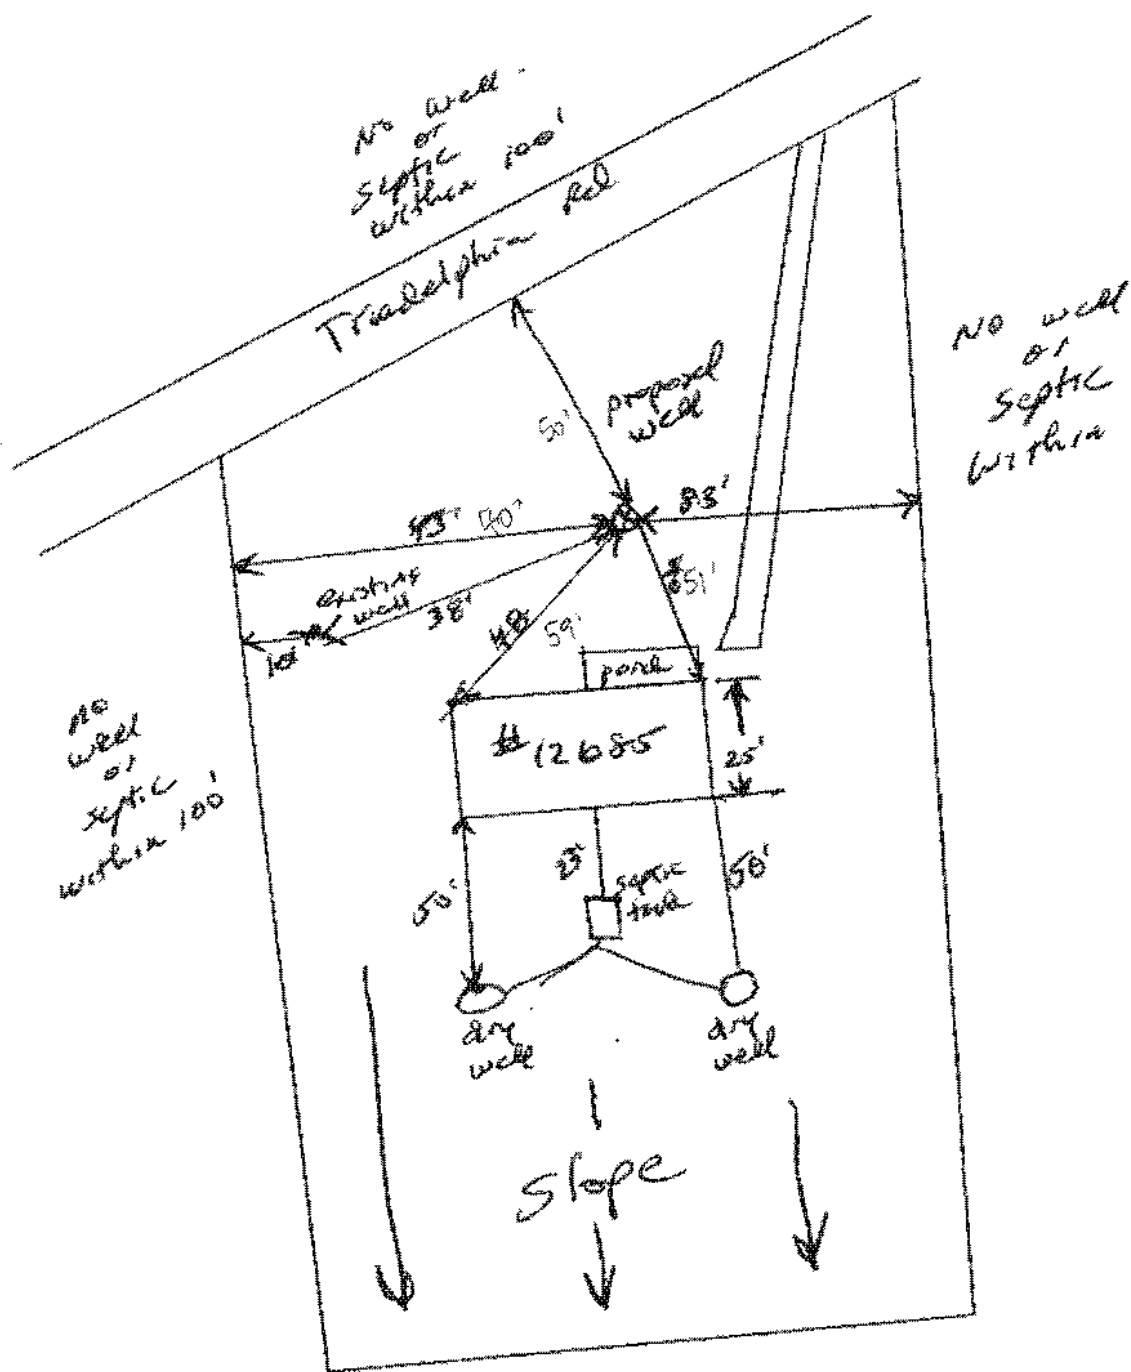 No well
or
septic
within 100'
Triadelphia Rd
No well
or
septic
within
proposed
well
50'
83'
existing
well
38'
48
59'
51'
10'
porch
# 12685
25'
no
well
or
septic
within 100'
50'
septic
tank
50'
dry
well
dry
well
Slope